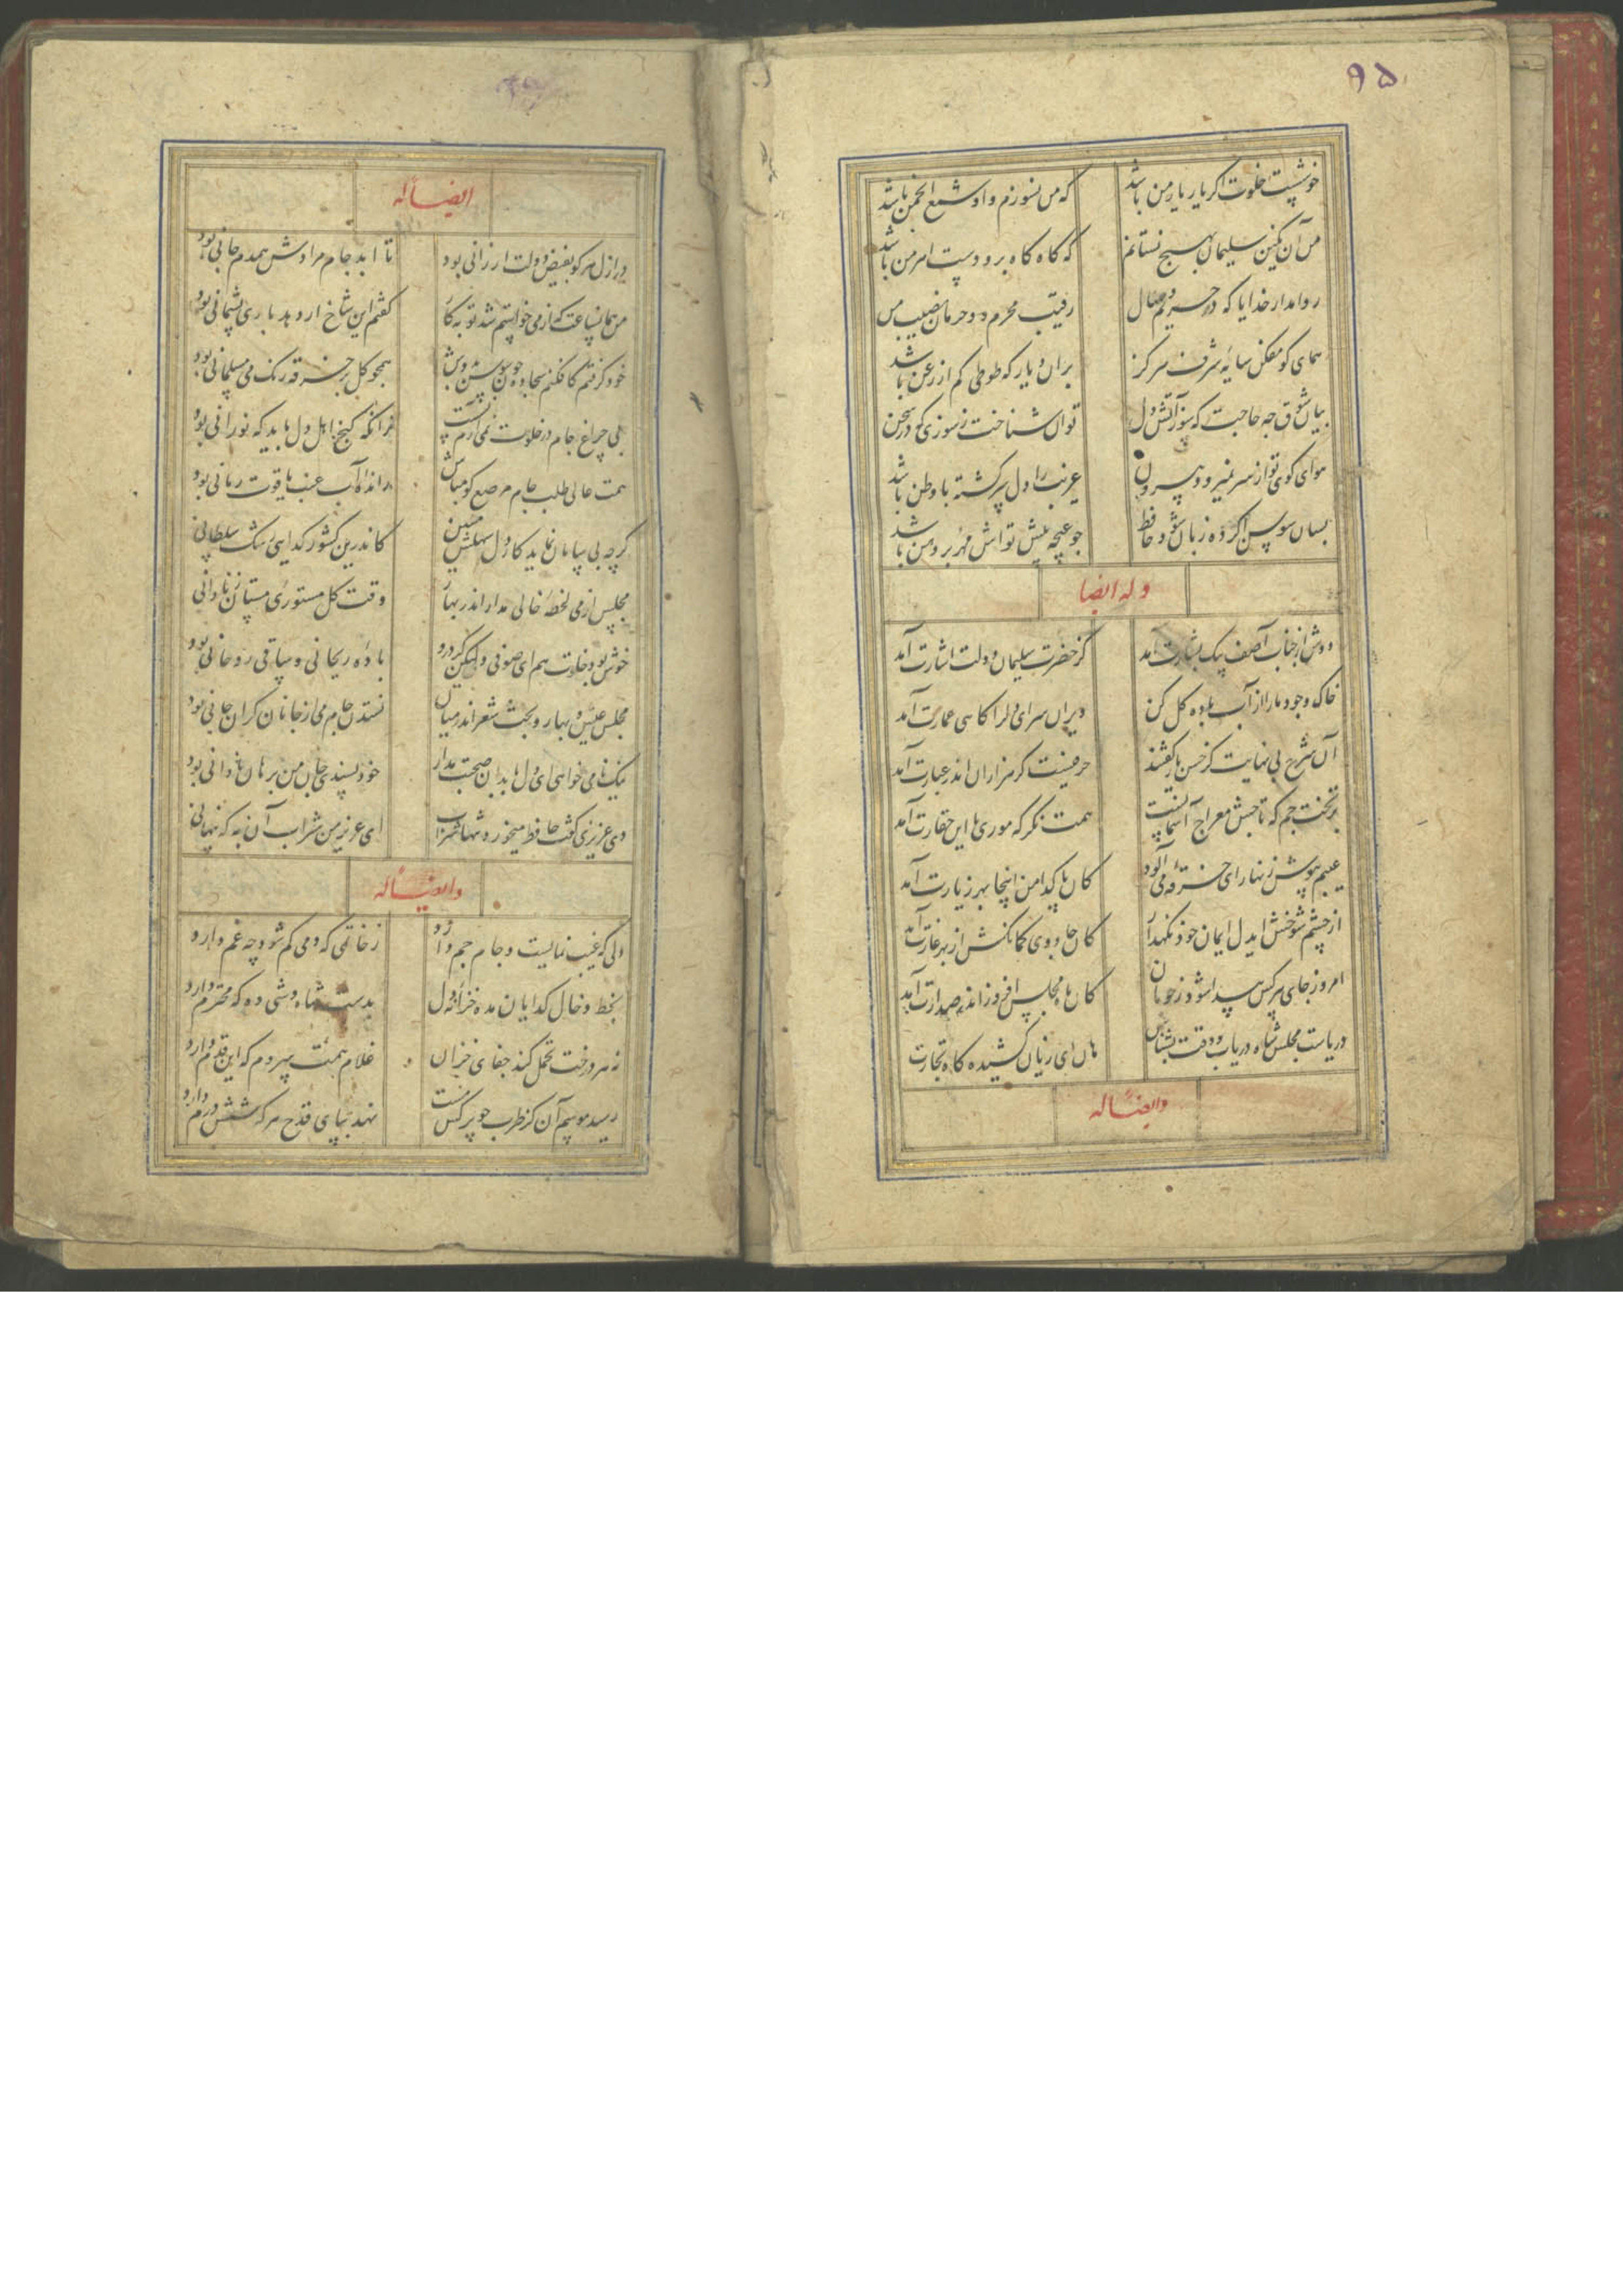 ۹۵
خوشست خلوت اگر یار یار من باشد که من نسوزم و او شمع انجمن باشد
من آن نگین سلیمان بهیچ نستانم که گاه گاه برو دست اهرمن باشد
روا مدار خدایا که در حریم وصال رقیب محرم و حرمان نصیب من
همای گو مفکن سایه شرف هرگز بران دیار که طوطی کم از زغن باشد
بیان شوق چه حاجت که سوز آتش دل توان شناخت ز سوزی که در سخن
هوای کوی تو از سر نمیرود بیرون غریب را دل سرگشته با وطن باشد
بسان سوسن اگر ده زبان شود حافظ چو غنچه پیش تواش مهر بر دهن باشد
وله ایضا
دوش از جناب آصف پیک بشارت آمد کز حضرت سلیمان دولت اشارت آمد
خاک وجود ما را از آب باده گل کن ویران سرای دل را گاهی عمارت آمد
آن شرح بی نهایت کز حسن یار گفتند حرفیست کز هزاران اندر عبارت آمد
بر تخت جم که تاجش معراج آسمانیست همت نگر که موری با این حقارت آمد
عیبم بپوش زنهار ای خرقه می آلود کان پاکدامن اینجا بهر زیارت آمد
از چشم شوخش ایدل ایمان خود نگهدار کان جادوی کمانکش از بهر غارت آمد
امروز جای هر کس پیدا شود ز خوبان کان ماه مجلس افروز اندر صدارت آمد
دریاست مجلس شاه دریاب وقت بشناس هان ای زیان کشیده گاه تجارت
وایضاً له
ایضاً له
در ازل هر کو بفیض دولت ارزانی بود تا ابد جام مرادش همدم جانی بود
من همانساعت که از می خواستم شد توبه کار گفتم این شاخ ار دهد باری پشیمانی بود
خود گرفتم کافکنم سجاده چون سوسن بدوش همچو گل بر خرقه رنگ می مسلمانی بود
بی چراغ جام در خلوت نمی آرم نشست زانکه کنج اهل دل باید که نورانی بود
همت عالی طلب جام مرصع گو مباش رند را آب عنب یاقوت رمانی بود
گرچه بی سامان نماید کار دل سهلش مبین کاندرین کشور گدایی رشک سلطانی
مجلس از می لحظه خالی مدار اندر بهار وقت گل مستوری مستان ز نادانی
خوش بود خلوت هم ای صوفی ولیکن گر درو باده ریحانی و ساقی روحانی بود
مجلس عیش و بهار و بحث شعر اندر میان نستدن جام می از جانان گران جانی بود
نیک نامی خواهی ای دل با بدان صحبت مدار خود پسندی جان من برهان نادانی بود
دی عزیزی گفت حافظ میخورد پنهان شراب ای عزیز من شراب آن به که پنهانی
وایضاً له
دلی که غیب نمایست و جام جم دارد ز خاتمی که دمی گم شود چه غم دارد
بخط و خال گدایان مده خزانه دل بدست شاه وشی ده که محترم دارد
نه هر درخت تحمل کند جفای خزان غلام همت سروم که این قدم دارد
رسید موسم آن کز طرب چو نرگس مست نهد بپای قدح هر که شش درم دارد